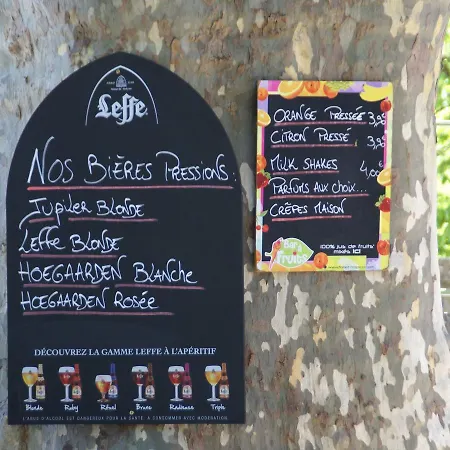 Leffe
NOS BIÈRES PRESSIONS :
JUPILER BLONDE
LEFFE BLONDE
HOEGAARDEN BLANCHE
HOEGAARDEN ROSÉE
DÉCOUVREZ LA GAMME LEFFE À L'APÉRITIF
Blonde Ruby Rituel Brune Radieuse Triple
L'ABUS D'ALCOOL EST DANGEREUX POUR LA SANTÉ. À CONSOMMER AVEC MODÉRATION.
ORANGE PRESSÉE
CITRON PRESSÉ
MILK SHAKES 4,00€
PARFUMS AUX CHOIX...
CRÊPES MAISON
Bar à Fruits
100% jus de fruits